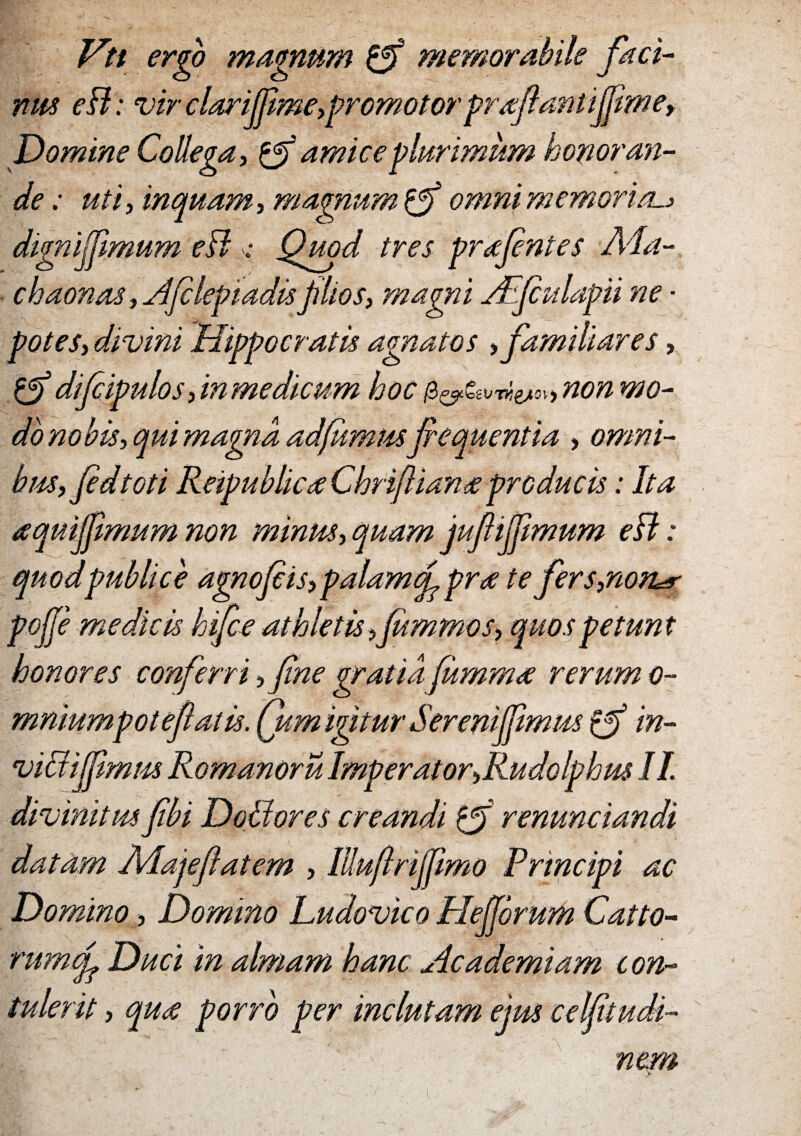 Vti ergò magnum & memorabile faci-
nus eſt: vir clariſſime, promotor præſtantiſſime,
Domine Collega, & amice plurimùm honoran-
de: uti, inquam, magnum & omni memoria
digniſſimum eſt: Quod tres præſentes Ma-
chaonas, Aſclepiadis filios, magni Æſculapii ne-
potes, divini Hippocratis agnatos, familiares,
& diſcipulos, in medicum hoc βραβευτήριον, non mo-
dò nobis, qui magnâ adſumus frequentia, omni-
bus, ſed toti Reipublicæ Chriſtianæ producis: Ita
æquiſſimum non minus, quam juſtiſſimum eſt:
quod publicè agnoſcis, palamq; præ te fers, non
poſſe medicis hiſce athletis, ſummos, quos petunt
honores conferri, ſine gratiâ ſummæ rerum o-
mnium poteſtatis. Cum igitur Sereniſſimus & in-
victiſſimus Romanorū Imperator, Rudolphus II.
divinitus ſibi Doctores creandi & renunciandi
datam Majeſtatem, Illuſtriſſimo Principi ac
Domino, Domino Ludovico Heſſorum Catto-
rumq; Duci in almam hanc Academiam con-
tulerit, quæ porrò per inclutam ejus celſitudi-
nem